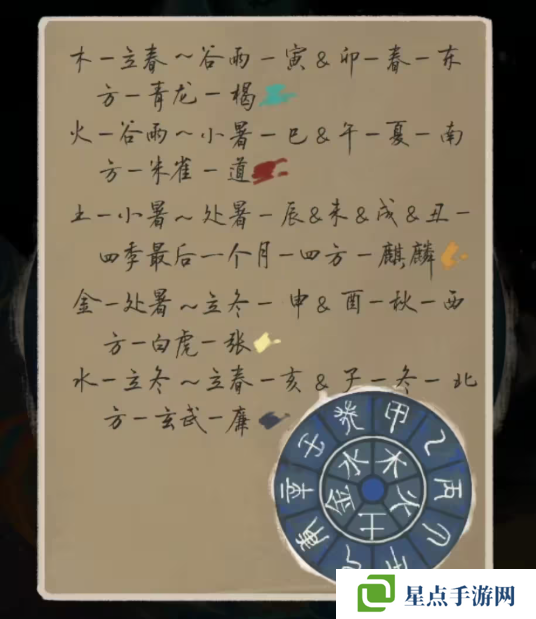 木一立春～谷雨一寅&卯一春一东
方一青龙一楬
火一谷雨～小暑一巳&午一夏一南
方一朱雀一道
土一小暑～处暑一辰&未&戌&丑一
四季最后一个月一四方一麒麟
金一处暑～立冬一申&酉一秋一西
方一白虎一张
水一立冬～立春一亥&子一冬一北
方一玄武一廉
癸 甲 乙 丙
壬 辛 庚
水 木 火 土 金
星点手游网